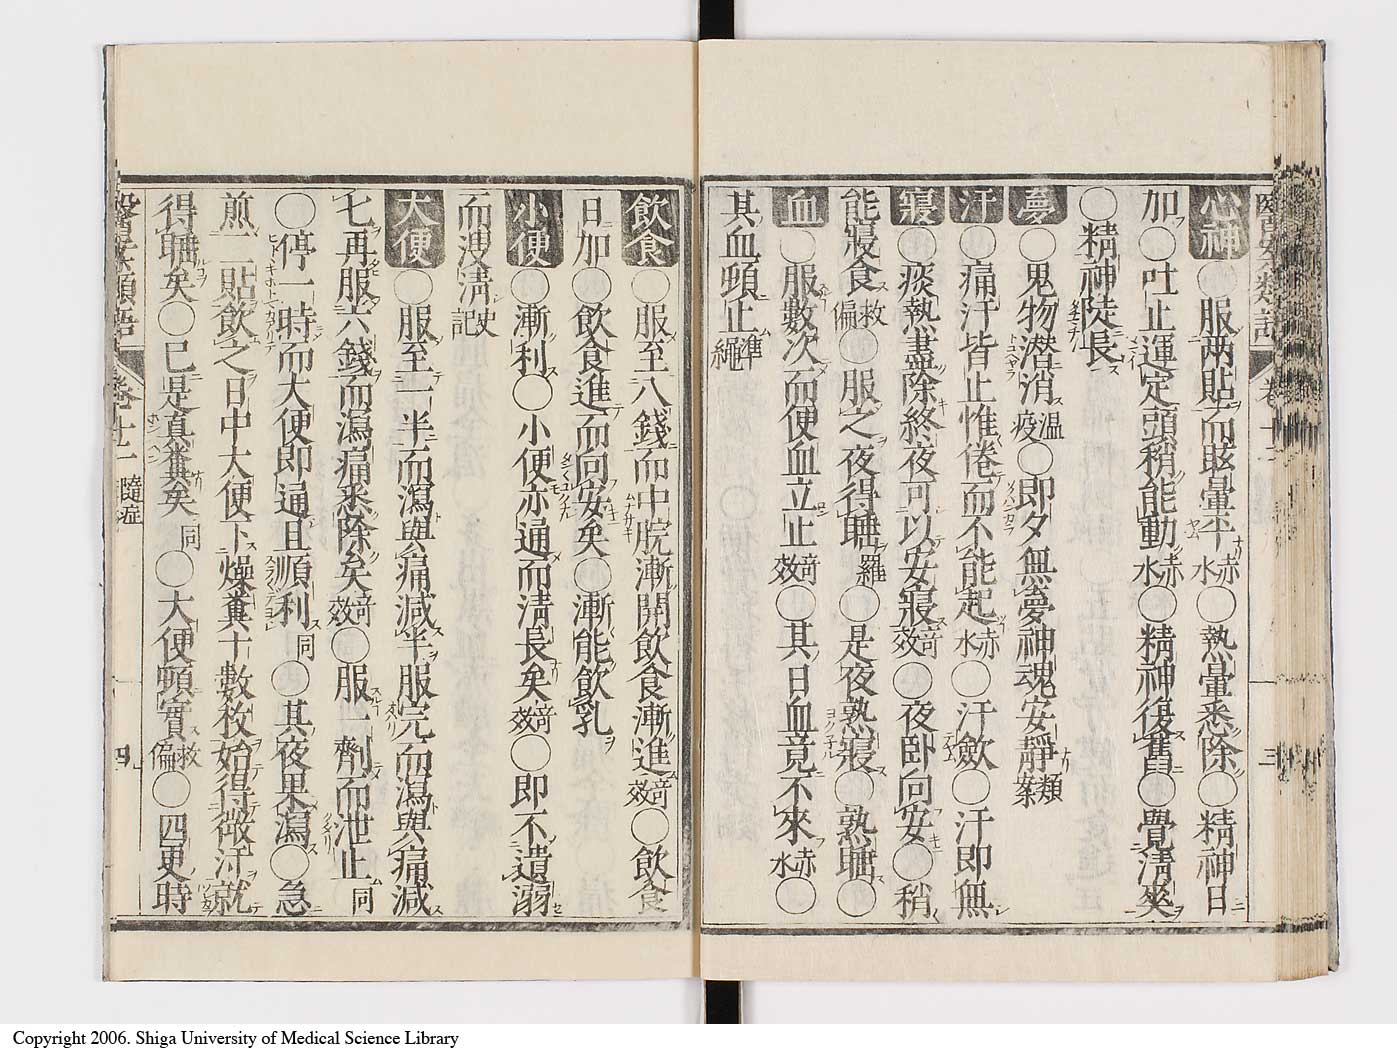 心神○服兩貼而眩暈平赤水○熱暈悉除○精神日
加○吐止運定頭稍能動赤水○精神復舊○覺淸爽
○精神陡長
夢○鬼物潜消温疫○即夕無夢神魂安靜類案
汗○痛汗皆止惟倦而不能起赤水○汗歛○汗即無
寢○痰熱盡除終夜可以安寢竒效○夜卧向安○稍
能寢食救偏○服之夜得睡羅○是夜熟寢○熟睡○
血○服數次而便血立止竒效○其日血竟不來赤水○
其血頓止準繩
飲食○服至八錢而中脘漸開飲食漸進竒效○飲食
日加○飲食進而向安矣○漸能飲乳
小便○漸利○小便亦通而淸長矣竒效○即不遺溺
而溲淸史記
大便○服至一半而瀉與痛減半服完而瀉與痛減
七再服六錢而瀉痛悉除矣竒效○服一劑而泄止同
○停一時而大便即通且順利同○其夜果瀉○急
煎二貼飲之日中大便下燥糞十數枚始得微汗就
得睡矣○已是真糞矣同○大便頓實救偏○四更時
醫案類語 卷十二 隨症 四